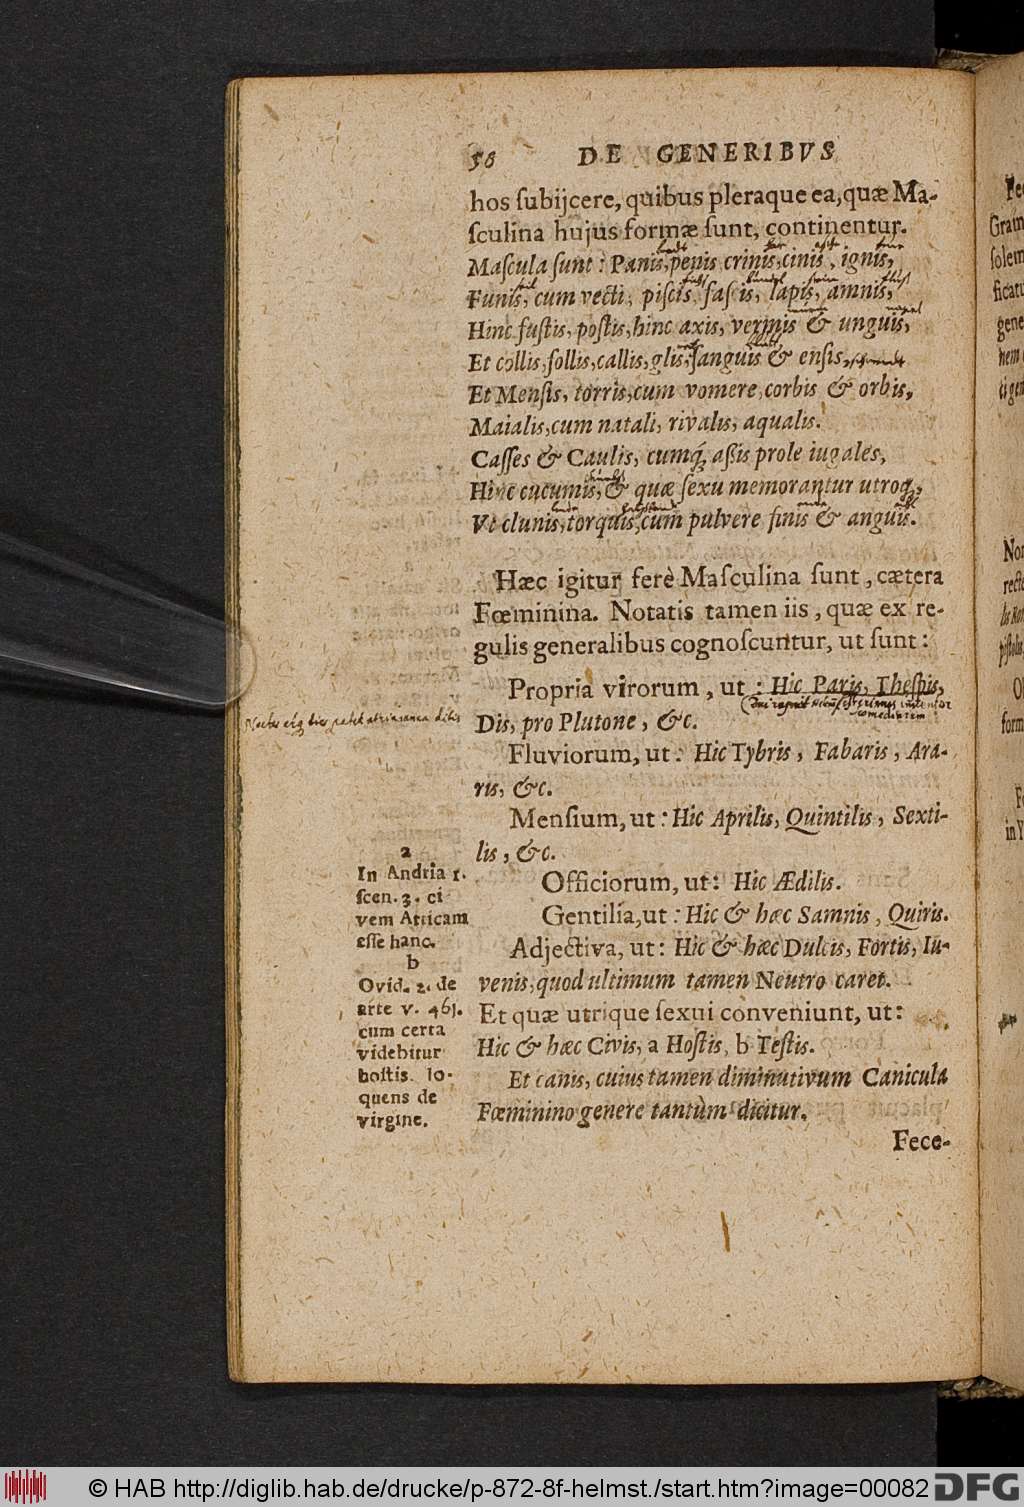 58 DE GENERIBVS
hos ſubijcere, quibus pleraque ea, quæ Ma-
ſculina hujus formæ ſunt, continentur.
Maſcula ſunt: Panis, penis crinis, cinis, ignis,
Funis, cum vecti, piſcis, faſcis, lapis, amnis,
Hinc fuſtis, poſtis, hinc axis, vermis & unguis,
Et collis, follis, callis, glis, ſanguis & enſis,
Et Menſis, torris, cum vomere, corbis & orbis,
Maialis, cum natali, rivalis, aqualis.
Caſſes & Caulis, cumq́; aßis prole iugales,
Hinc cucumis, & quæ ſexu memorantur utroq;,
Vt clunis, torquis, cum pulvere finis & anguis.
Hæc igitur ferè Maſculina ſunt, cætera
Fœminina. Notatis tamen iis, quæ ex re-
gulis generalibus cognoſcuntur, ut ſunt:
Propria virorum, ut: Hic Paris, Theſpis,
Dis, pro Plutone, &c.
Fluviorum, ut: Hic Tybris, Fabaris, Ara-
ris, &c.
Menſium, ut: Hic Aprilis, Quintilis, Sexti-
lis, &c.
Officiorum, ut: Hic Ædilis.
Gentilia, ut: Hic & hæc Samnis, Quiris.
Adjectiva, ut: Hic & hæc Dulcis, Fortis, Iu-
venis, quod ultimum tamen Neutro caret.
Et quæ utrique ſexui conveniunt, ut:
Hic & hæc Civis, a Hoſtis, b Teſtis.
Et canis, cuius tamen diminutivum Canicula
Fœminino genere tantùm dicitur.
Fece-
a
In Andria 1.
ſcen. 3. ci
vem Atticam
eſſe hanc.
b
Ovid. 2. de
arte v. 461.
cum certa
videbitur
hoſtis. lo-
quens de
virgine.
© HAB http://diglib.hab.de/drucke/p-872-8f-helmst./start.htm?image=00082 DFG